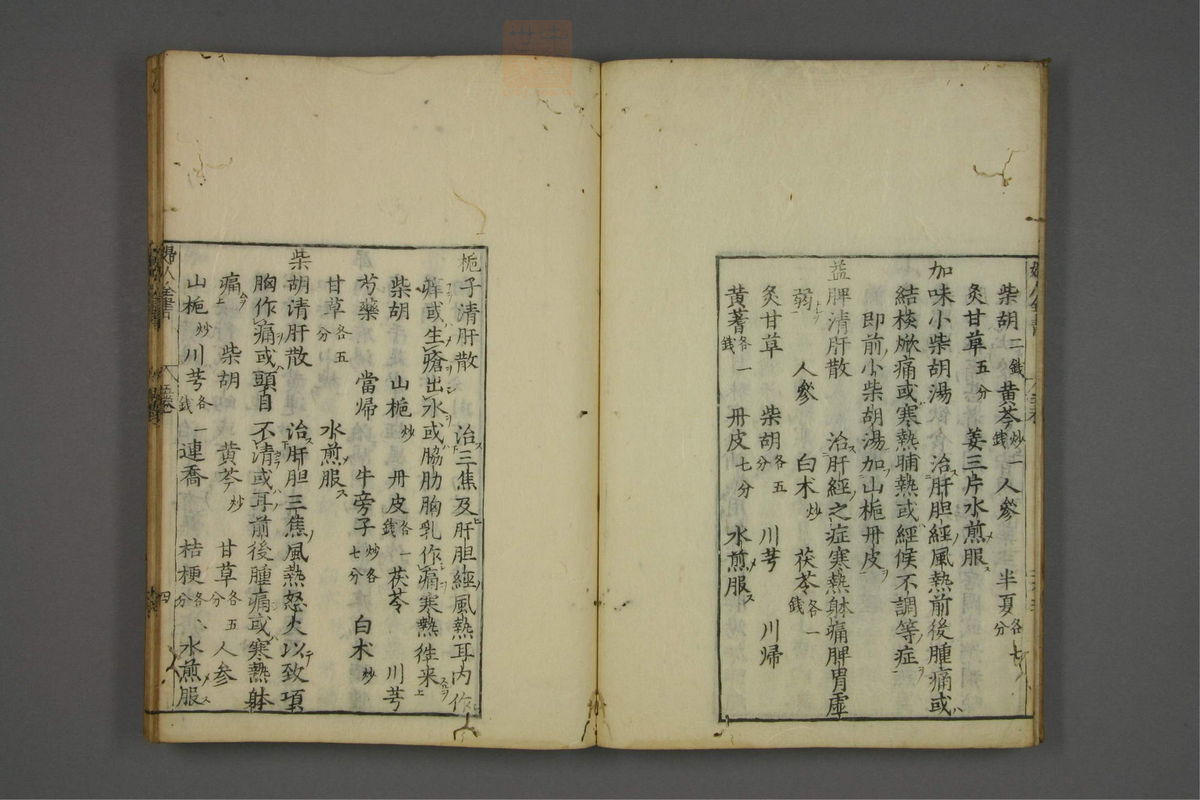 柴胡二錢 黃芩炒一錢 人參 半夏各七分
炙甘草五分 姜三片水煎服
加味小柴胡湯 治肝胆經風熱前後腫痛或
結核焮痛或寒熱晡熱或經候不調等症
即前小柴胡湯加山梔丹皮
益脾清肝散 治肝經之症寒熱躰痛脾胃虛
弱 人參 白朮炒 茯苓各一錢
炙甘草 柴胡各五分 川芎 川帰
黃蓍各一錢 丹皮七分 水煎服
梔子清肝散 治三焦及肝胆經風熱耳内作
痒或生瘡出水或脇肋胸乳作痛寒熱徃来
柴胡 山梔炒 丹皮各一錢 茯苓 川芎
芍藥 當帰 牛旁子炒各七分 白朮炒
甘草各五分 水煎服
柴胡清肝散 治肝胆三焦風熱怒火以致項
胸作痛或頭目不清或耳前後腫痛或寒熱躰
痛 柴胡 黃芩炒 甘草各五分 人参
山梔炒 川芎各一錢 連喬 桔梗各分 水煎服
婦人全書
五卷
四